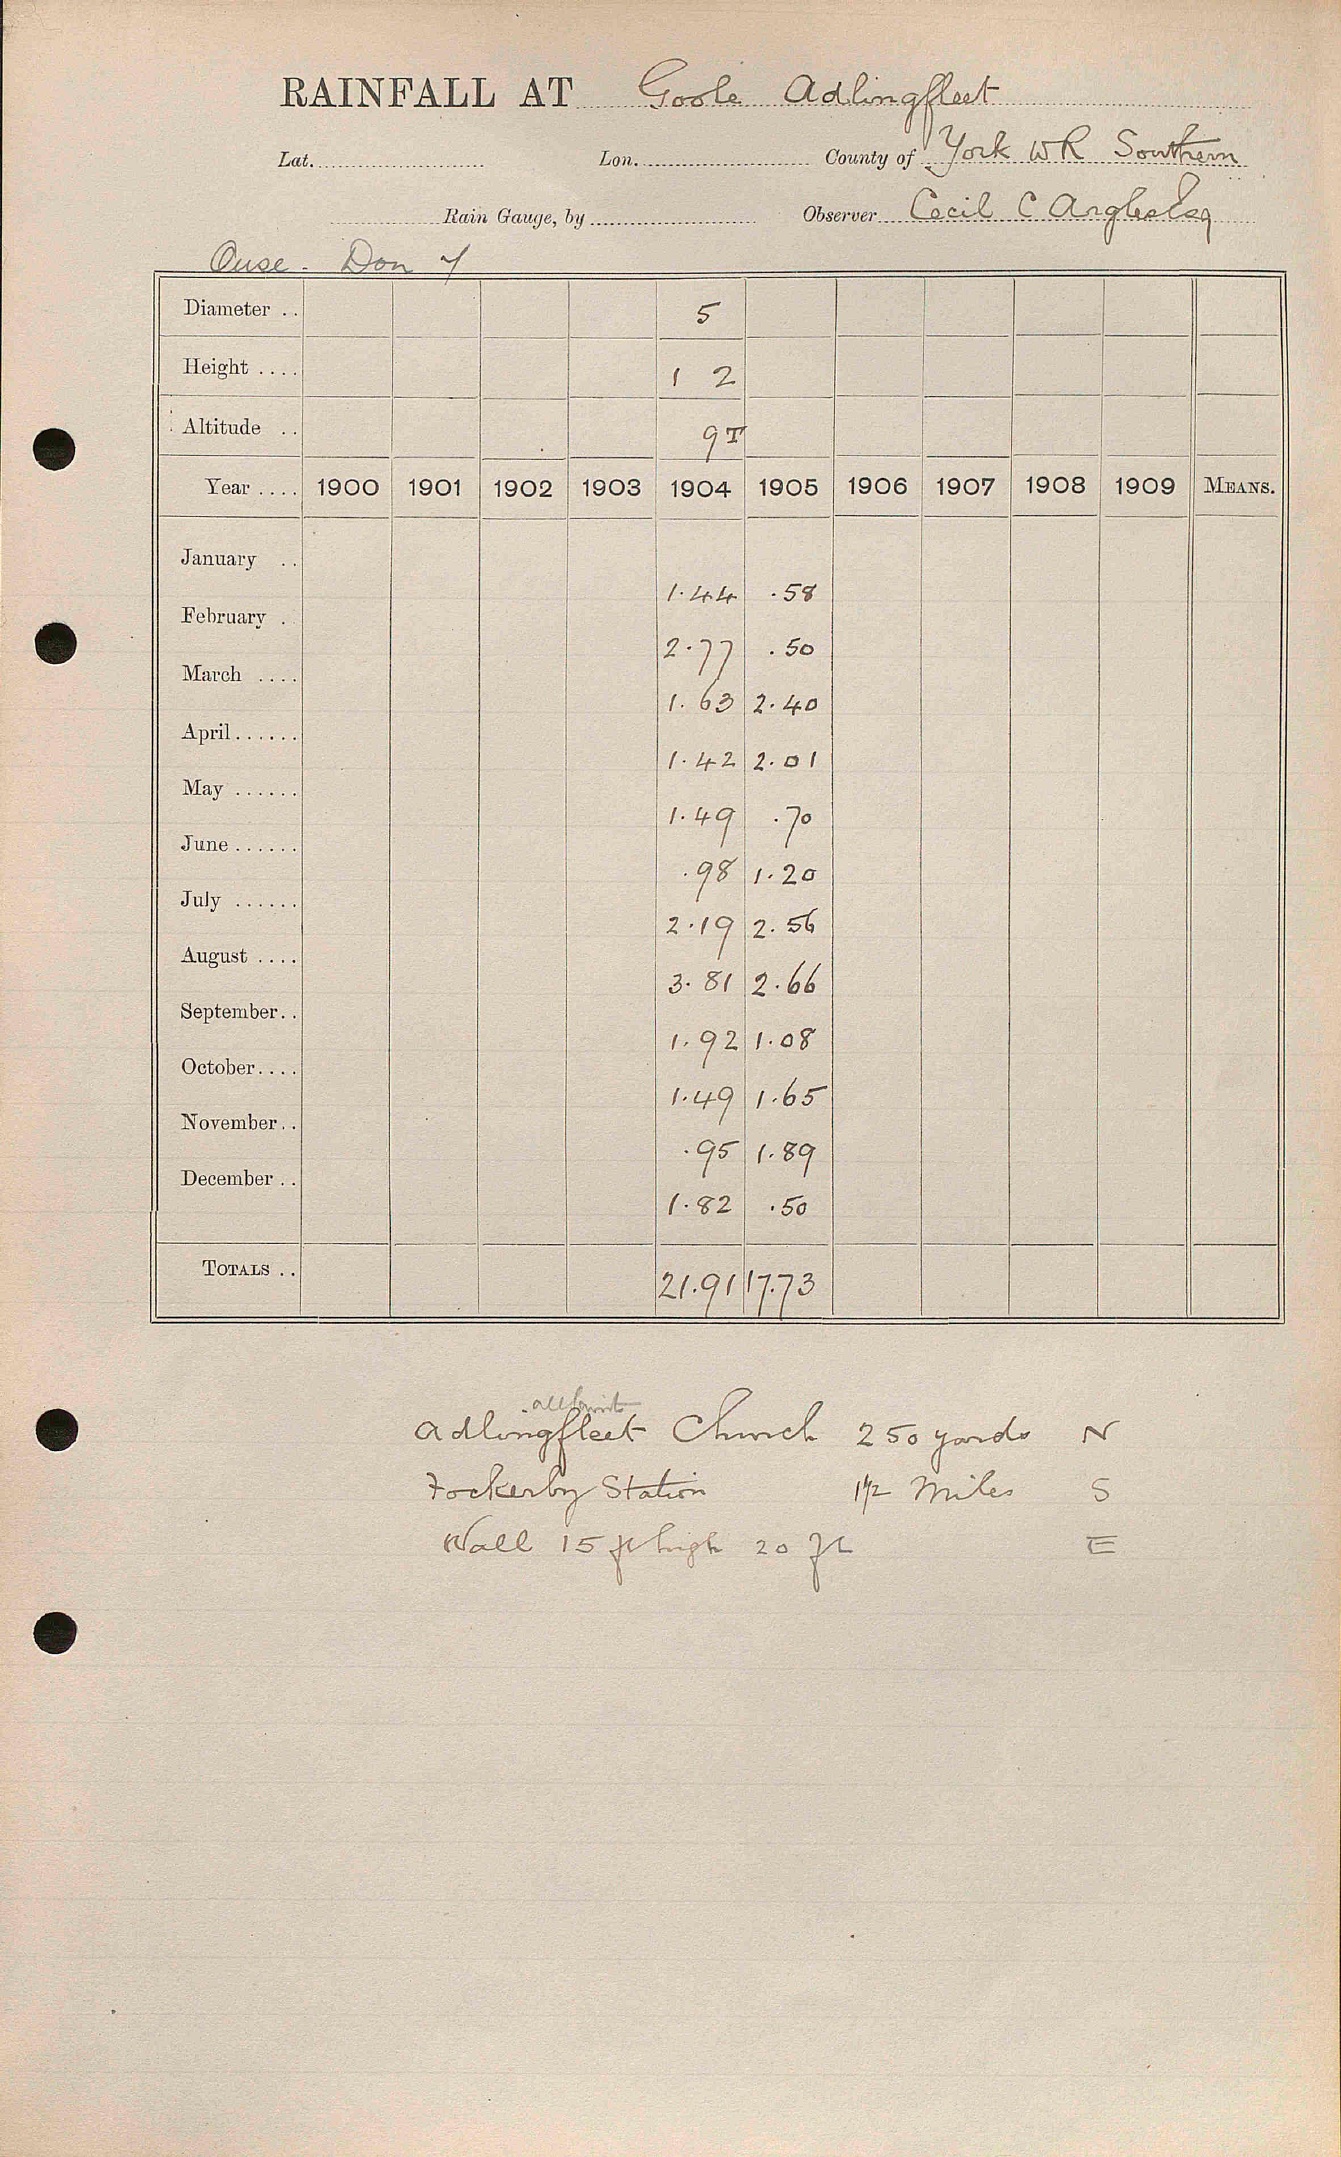 RAINFALL AT Goole Adlingfleet
Lat. Lon. County of York WR Southern
Rain Gauge, by Observer Cecil C Angles Esq
Ouse - Don
Diameter .. 5
Height .... 1 2
Altitude .. 9T
Year .... 1900 1901 1902 1903 1904 1905 1906 1907 1908 1909 MEANS.
January .. 1.44 .58
February . 2.77 .50
March .... 1.63 2.40
April ...... 1.42 2.01
May ...... 1.49 .70
June ...... .98 1.20
July ...... 2.19 2.56
August .... 3.81 2.66
September.. 1.92 1.08
October.... 1.49 1.65
November.. .95 1.89
December .. 1.82 .50
TOTALS .. 21.91 17.73
Adlingfleet Church 250 yards N
Fockerby Station 1 1/2 Miles S
Wall 15 ft high 20 ft E